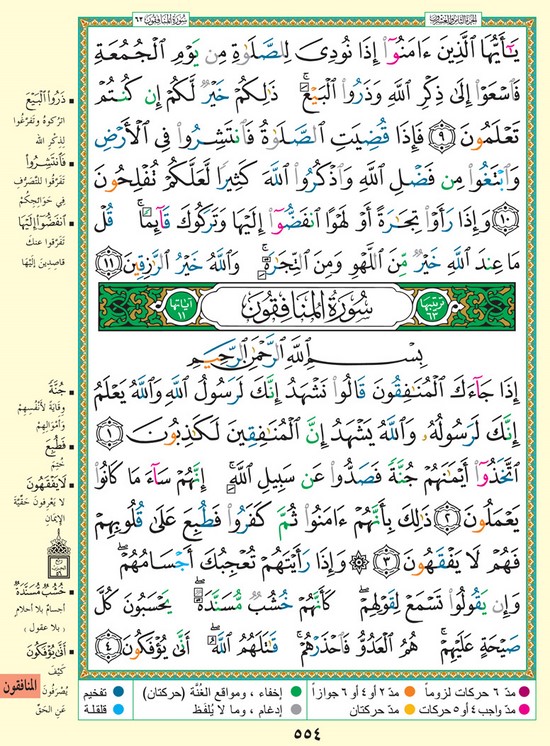 الجزء الثامن والعشرون
سورة المنافقون ٦٣
يَٰٓأَيُّهَا ٱلَّذِينَ ءَامَنُوٓا۟ إِذَا نُودِىَ لِلصَّلَوٰةِ مِن يَوْمِ ٱلْجُمُعَةِ
فَٱسْعَوْا۟ إِلَىٰ ذِكْرِ ٱللَّهِ وَذَرُوا۟ ٱلْبَيْعَ ۚ ذَٰلِكُمْ خَيْرٌ لَّكُمْ إِن كُنتُمْ
تَعْلَمُونَ ٩ فَإِذَا قُضِيَتِ ٱلصَّلَوٰةُ فَٱنتَشِرُوا۟ فِى ٱلْأَرْضِ
وَٱبْتَغُوا۟ مِن فَضْلِ ٱللَّهِ وَٱذْكُرُوا۟ ٱللَّهَ كَثِيرًا لَّعَلَّكُمْ تُفْلِحُونَ
١٠ وَإِذَا رَأَوْا۟ تِجَٰرَةً أَوْ لَهْوًا ٱنفَضُّوٓا۟ إِلَيْهَا وَتَرَكُوكَ قَآئِمًا ۚ قُلْ
مَا عِندَ ٱللَّهِ خَيْرٌ مِّنَ ٱللَّهْوِ وَمِنَ ٱلتِّجَٰرَةِ ۚ وَٱللَّهُ خَيْرُ ٱلرَّٰزِقِينَ ١١
ترتيبها ٦٣ سُورَةُ المنَافِقُون آياتها ١١
بِسْمِ ٱللَّهِ ٱلرَّحْمَٰنِ ٱلرَّحِيمِ
إِذَا جَآءَكَ ٱلْمُنَٰفِقُونَ قَالُوا۟ نَشْهَدُ إِنَّكَ لَرَسُولُ ٱللَّهِ وَٱللَّهُ يَعْلَمُ
إِنَّكَ لَرَسُولُهُۥ وَٱللَّهُ يَشْهَدُ إِنَّ ٱلْمُنَٰفِقِينَ لَكَٰذِبُونَ ١
ٱتَّخَذُوٓا۟ أَيْمَٰنَهُمْ جُنَّةً فَصَدُّوا۟ عَن سَبِيلِ ٱللَّهِ ۚ إِنَّهُمْ سَآءَ مَا كَانُوا۟
يَعْمَلُونَ ٢ ذَٰلِكَ بِأَنَّهُمْ ءَامَنُوا۟ ثُمَّ كَفَرُوا۟ فَطُبِعَ عَلَىٰ قُلُوبِهِمْ
فَهُمْ لَا يَفْقَهُونَ ٣ ۞ وَإِذَا رَأَيْتَهُمْ تُعْجِبُكَ أَجْسَامُهُمْ ۖ
وَإِن يَقُولُوا۟ تَسْمَعْ لِقَوْلِهِمْ ۖ كَأَنَّهُمْ خُشُبٌ مُّسَنَّدَةٌ ۖ يَحْسَبُونَ كُلَّ
صَيْحَةٍ عَلَيْهِمْ ۚ هُمُ ٱلْعَدُوُّ فَٱحْذَرْهُمْ ۚ قَٰتَلَهُمُ ٱللَّهُ ۖ أَنَّىٰ يُؤْفَكُونَ ٤
ذَرُوا البَيْعَ
اتركوه وتفرغوا
لذكر الله
فانتشروا
تفرقوا للتصرف
في حوائجكم
انفضوا إليها
تفرقوا عنك
قاصدين إليها
جُنَّة
وقاية لأنفسهم
وأموالهم
فطُبِعَ
ختم
لا يفقهون
لا يعرفون حقيّة
الإيمان
خُشُبٌ مُسَنَّدَة
أجسام بلا أحلام
(بلا عقول)
أنّى يُؤفكون
كيف
يصرفون
عن الحق
المنافقون
مدّ ٦ حركات لزوماً مدّ ٢ أو ٤ أو ٦ جوازاً إخفاء، ومواقع الغُنَّة (حركتان) تفخيم
مدّ واجب ٤ أو ٥ حركات مدّ حركتان إدغام، وما لا يُلفَظ قلقلة
٥٥٤